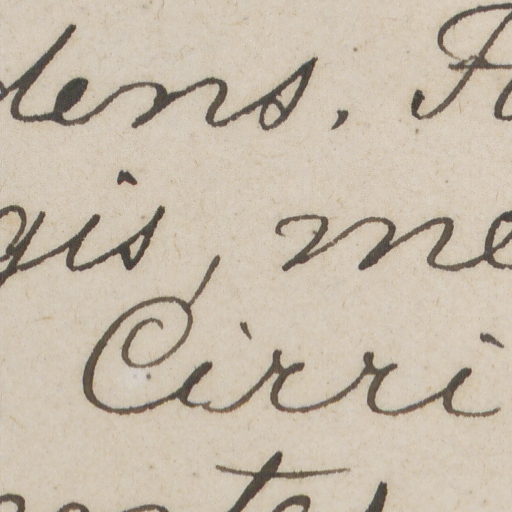 dens. F
gis, me
Cirri